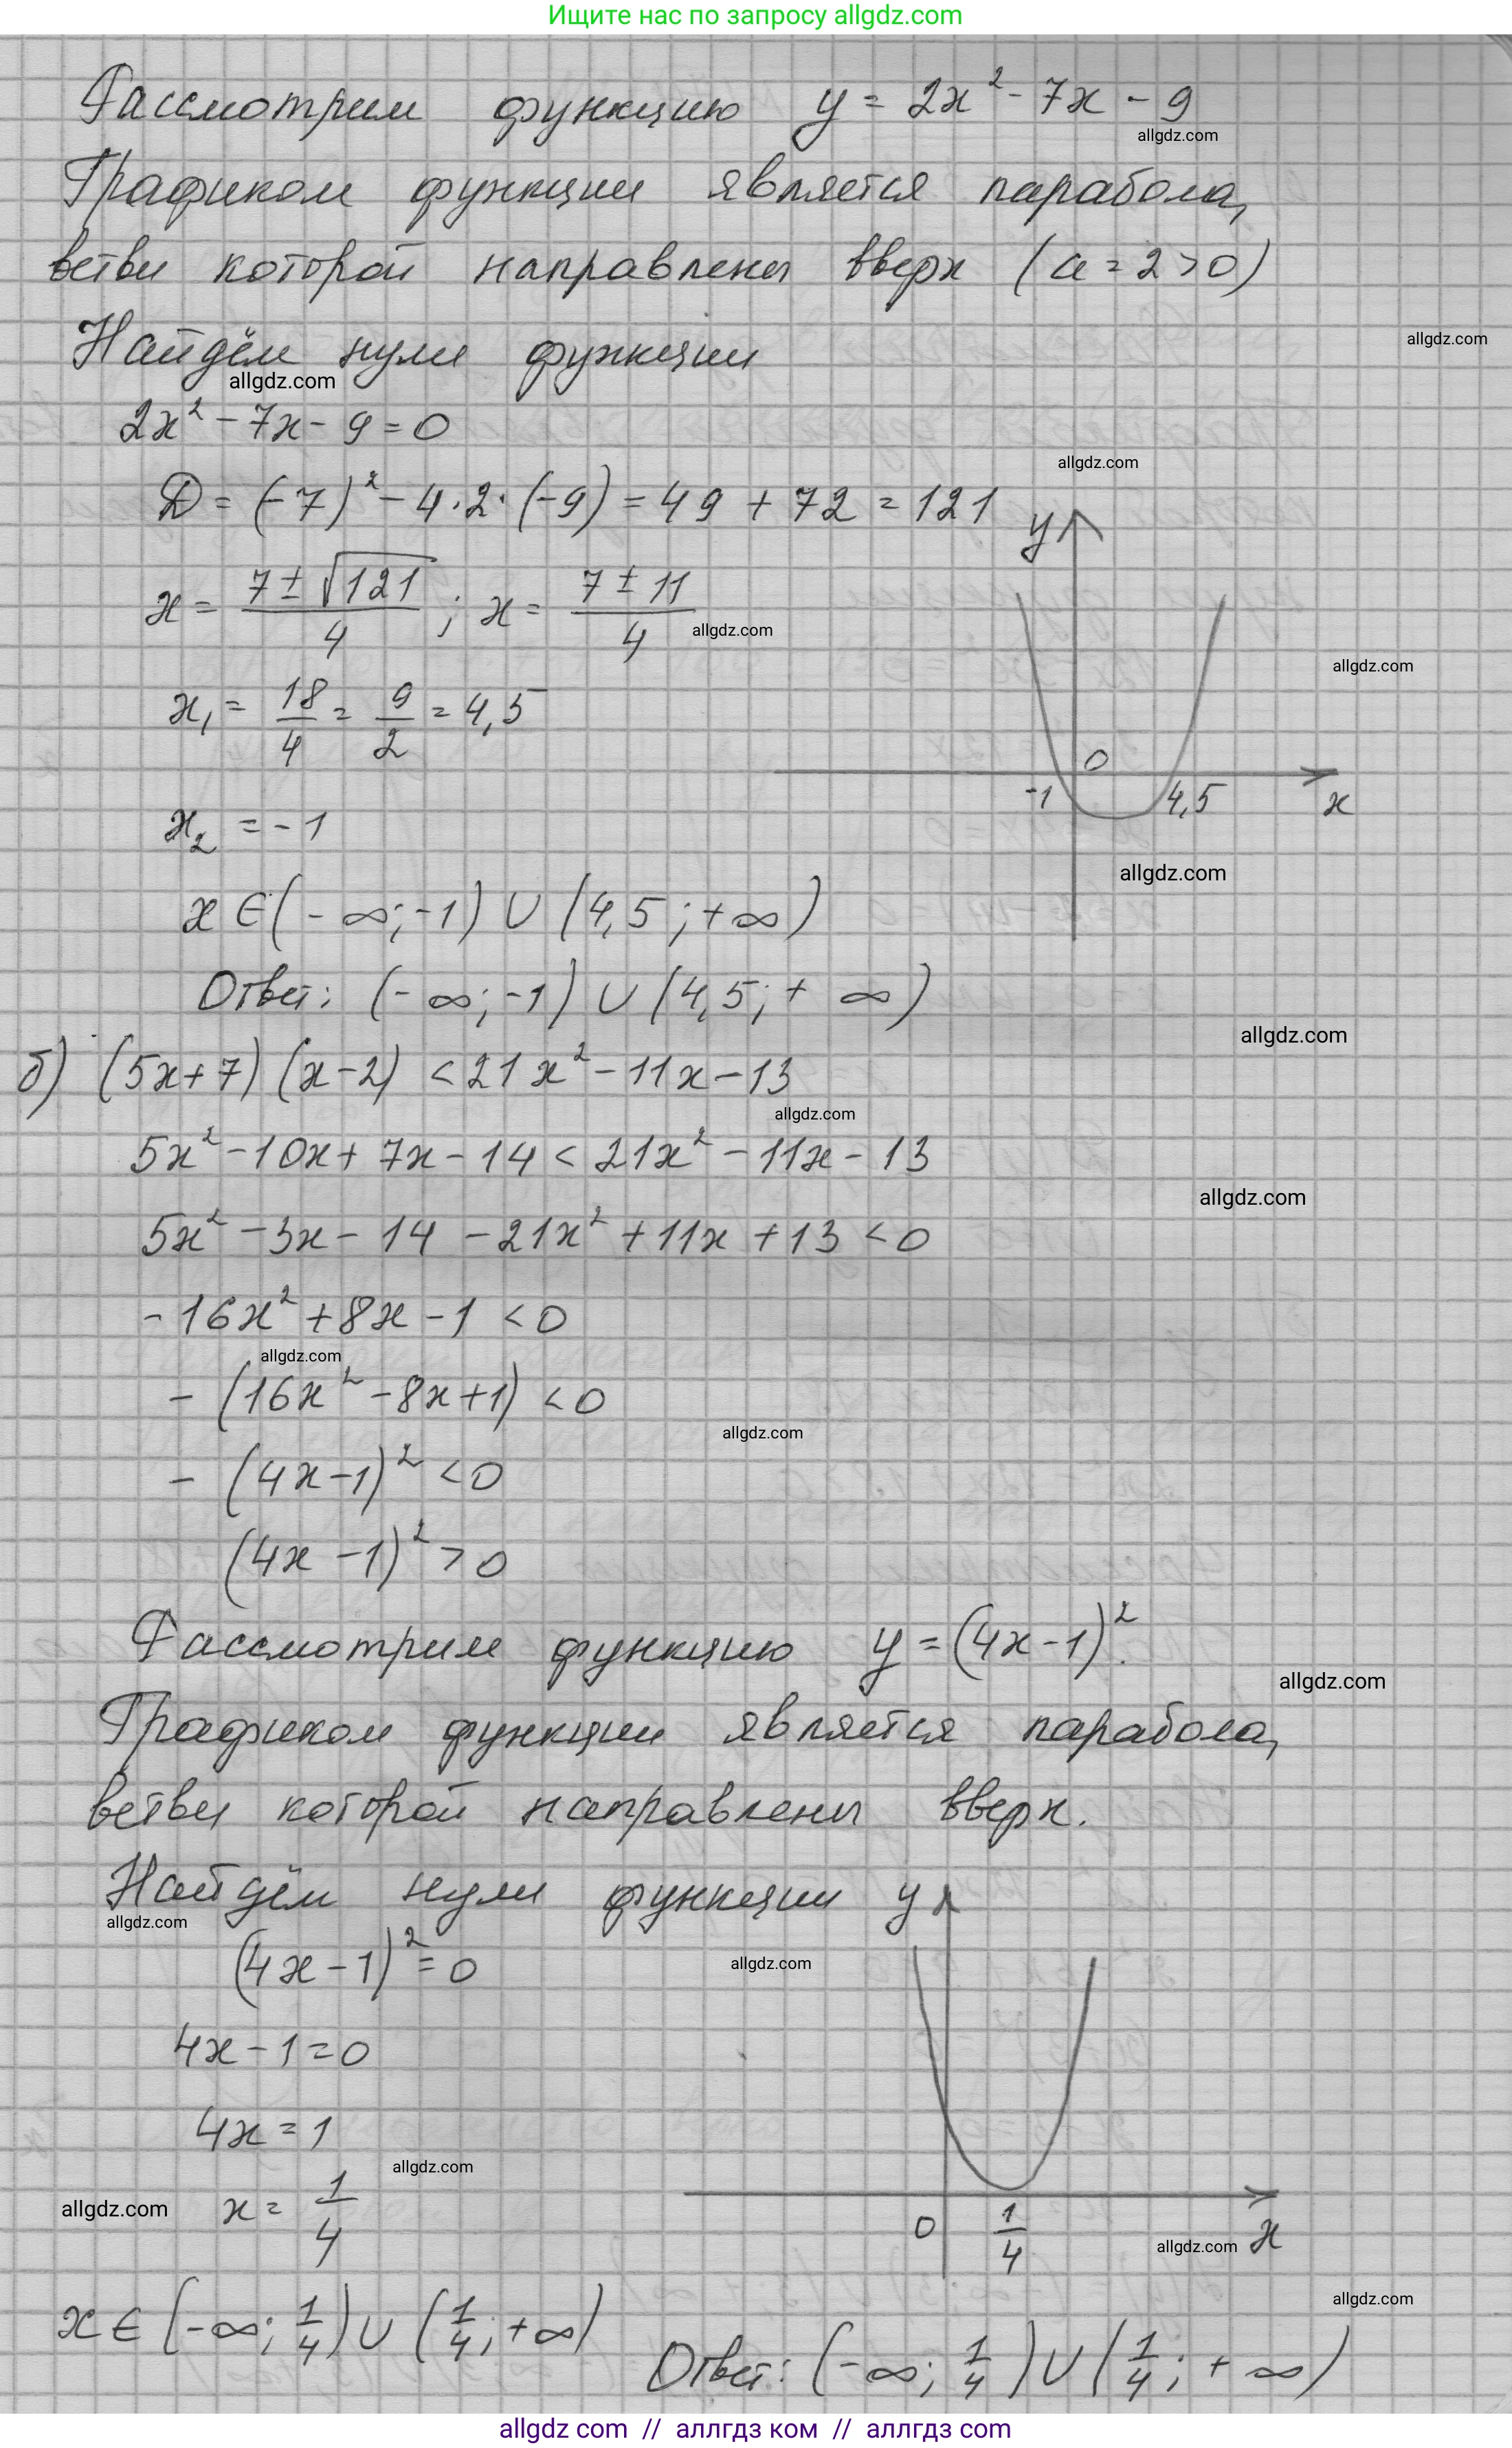 Ищите нас по запросу allgdz.com
Рассмотрим функцию y = 2x² - 7x - 9
allgdz.com
Графиком функции является парабола,
ветви которой направлены вверх (a = 2 > 0)
Найдём нули функции
allgdz.com
allgdz.com
2x² - 7x - 9 = 0
allgdz.com
D = (-7)² - 4·2·(-9) = 49 + 72 = 121
y
x = (7 ± √121)/4 ; x = (7 ± 11)/4
allgdz.com
allgdz.com
x₁ = 18/4 = 9/2 = 4,5
0
-1 4,5 x
x₂ = -1
allgdz.com
x ∈ (-∞; -1) ∪ (4,5; +∞)
Ответ: (-∞; -1) ∪ (4,5; +∞)
allgdz.com
б) (5x+7)(x-2) < 21x² - 11x - 13
allgdz.com
5x² - 10x + 7x - 14 < 21x² - 11x - 13
allgdz.com
5x² - 3x - 14 - 21x² + 11x + 13 < 0
-16x² + 8x - 1 < 0
allgdz.com
- (16x² - 8x + 1) < 0
allgdz.com
- (4x-1)² < 0
(4x - 1)² > 0
Рассмотрим функцию y = (4x-1)².
allgdz.com
Графиком функции является парабола,
ветви которой направлены вверх.
Найдём нули функции y
allgdz.com
(4x - 1)² = 0
allgdz.com
4x - 1 = 0
4x = 1
allgdz.com
allgdz.com
x = 1/4
0 1/4 x
allgdz.com
allgdz.com
x ∈ (-∞; 1/4) ∪ (1/4; +∞)
Ответ: (-∞; 1/4) ∪ (1/4; +∞)
allgdz com // аллгдз ком // аллгдз com